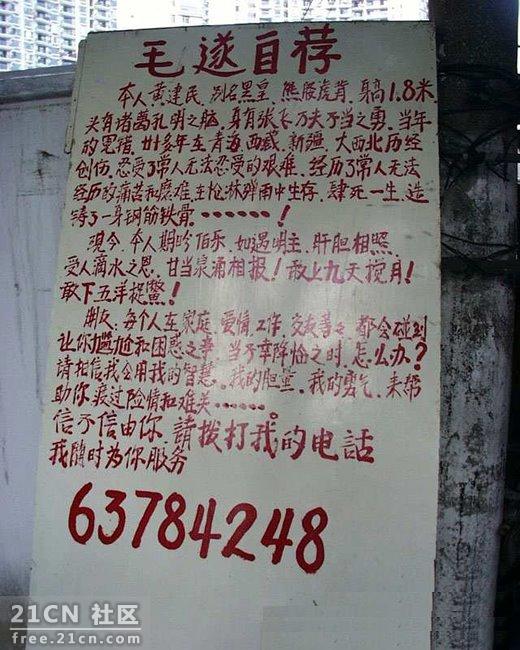 毛遂自荐
本人黄建民，别名黑皇，熊腰虎背，身高1.8米，
头有诸葛孔明之脑，身有张飞万夫不当之勇，当年
的黑猪，廿多年在青海、西藏、新疆、大西北历经
创伤，忍受了常人无法忍受的艰难，经历了常人无法
经历的痛苦和磨难，在枪林弹雨中生存，肆死一生，造
铸了一身钢筋铁骨……！
现今，本人期盼伯乐，如遇明主，肝胆相照，
受人滴水之恩，甘当泉涌相报！敢上九天揽月！
敢下五洋捉鳖！
朋友：每个人在家庭、爱情、工作、交友等々都会碰到
让你尴尬和困惑之事，当不幸降临之时，怎么办？
请相信我会用我的智慧、我的胆量、我的勇气，来帮
助你渡过险情和难关……。
信不信由你，请拨打我的电话
我随时为你服务
63784248
21CN 社区
free.21cn.com